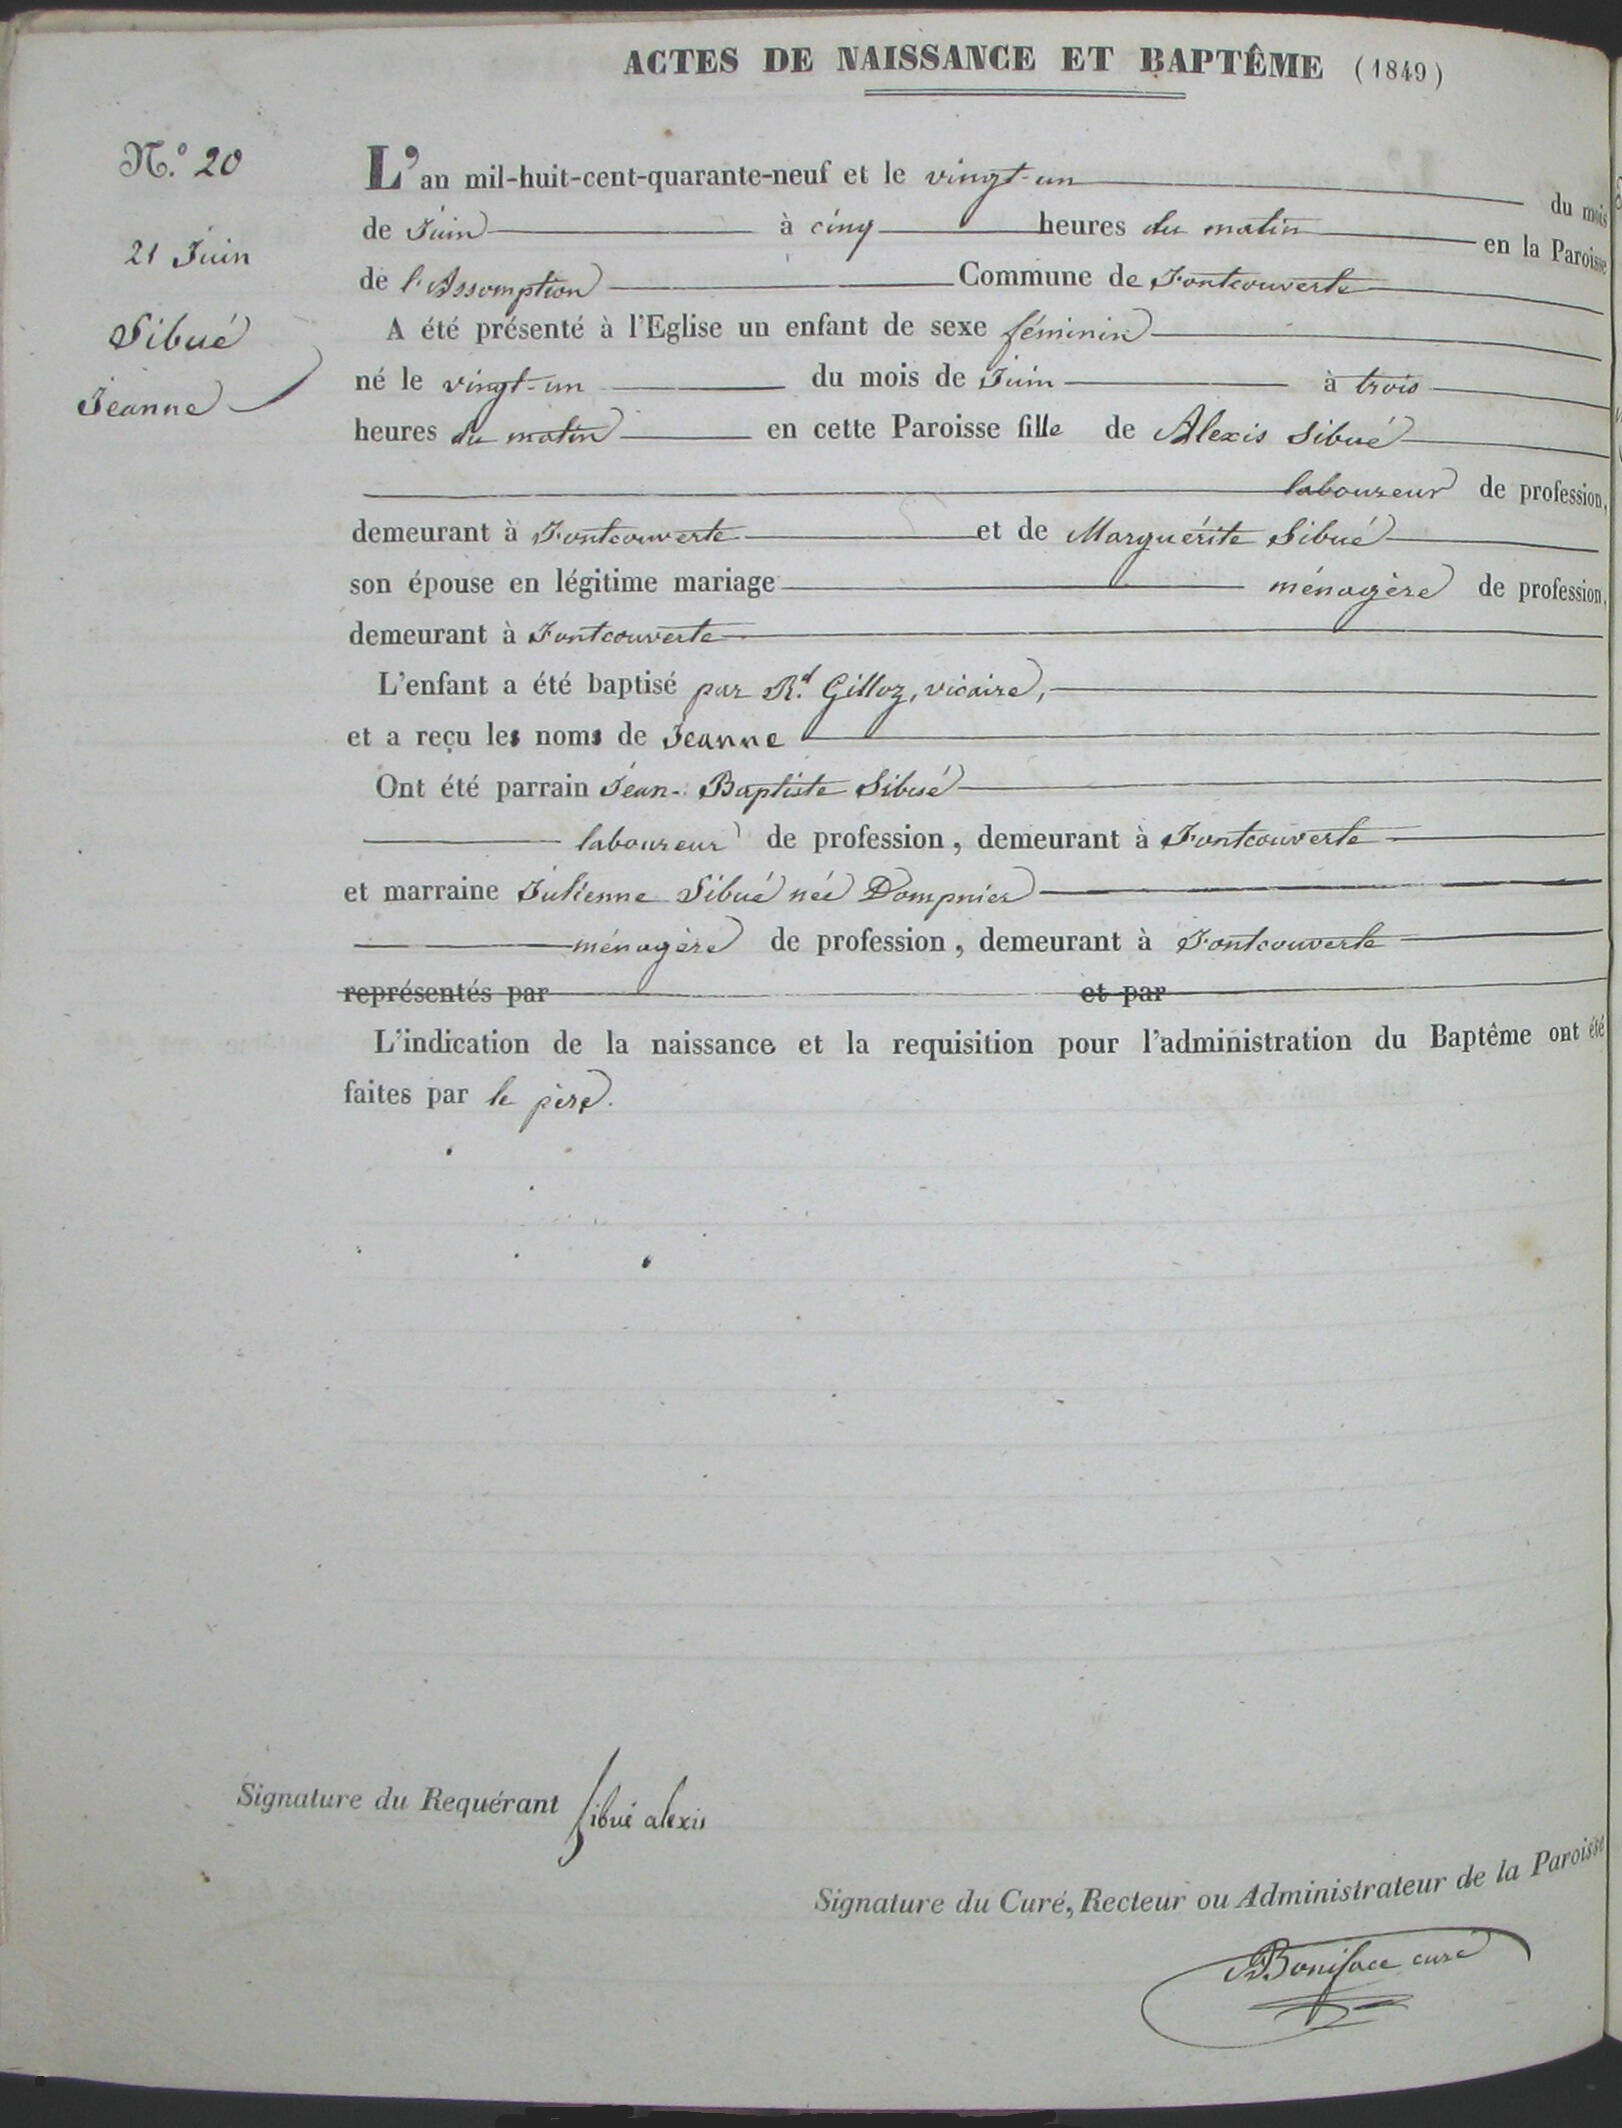 ACTES DE NAISSANCE ET BAPTÊME (1849)
N.o 20
21 Juin
Sibué
Jeanne
L'an mil-huit-cent-quarante-neuf et le vingt-un du mois
de Juin à cinq heures du matin en la Paroisse
de l'Assomption Commune de Fontcouverte
A été présenté à l'Eglise un enfant de sexe féminin
né le vingt-un du mois de Juin à trois
heures du matin en cette Paroisse fille de Alexis Sibué
laboureur de profession,
demeurant à Fontcouverte et de Marguérite Sibué
son épouse en légitime mariage ménagère de profession,
demeurant à Fontcouverte
L'enfant a été baptisé par Rd. Gilloz, vicaire,
et a reçu les noms de Jeanne
Ont été parrain Jean-Baptiste Sibué
laboureur de profession, demeurant à Fontcouverte
et marraine Julienne Sibué née Dompnier
ménagère de profession, demeurant à Fontcouverte
représentés par et par
L'indication de la naissance et la requisition pour l'administration du Baptême ont été
faites par le père.
Signature du Requérant Sibué alexis
Signature du Curé, Recteur ou Administrateur de la Paroisse
Boniface curé